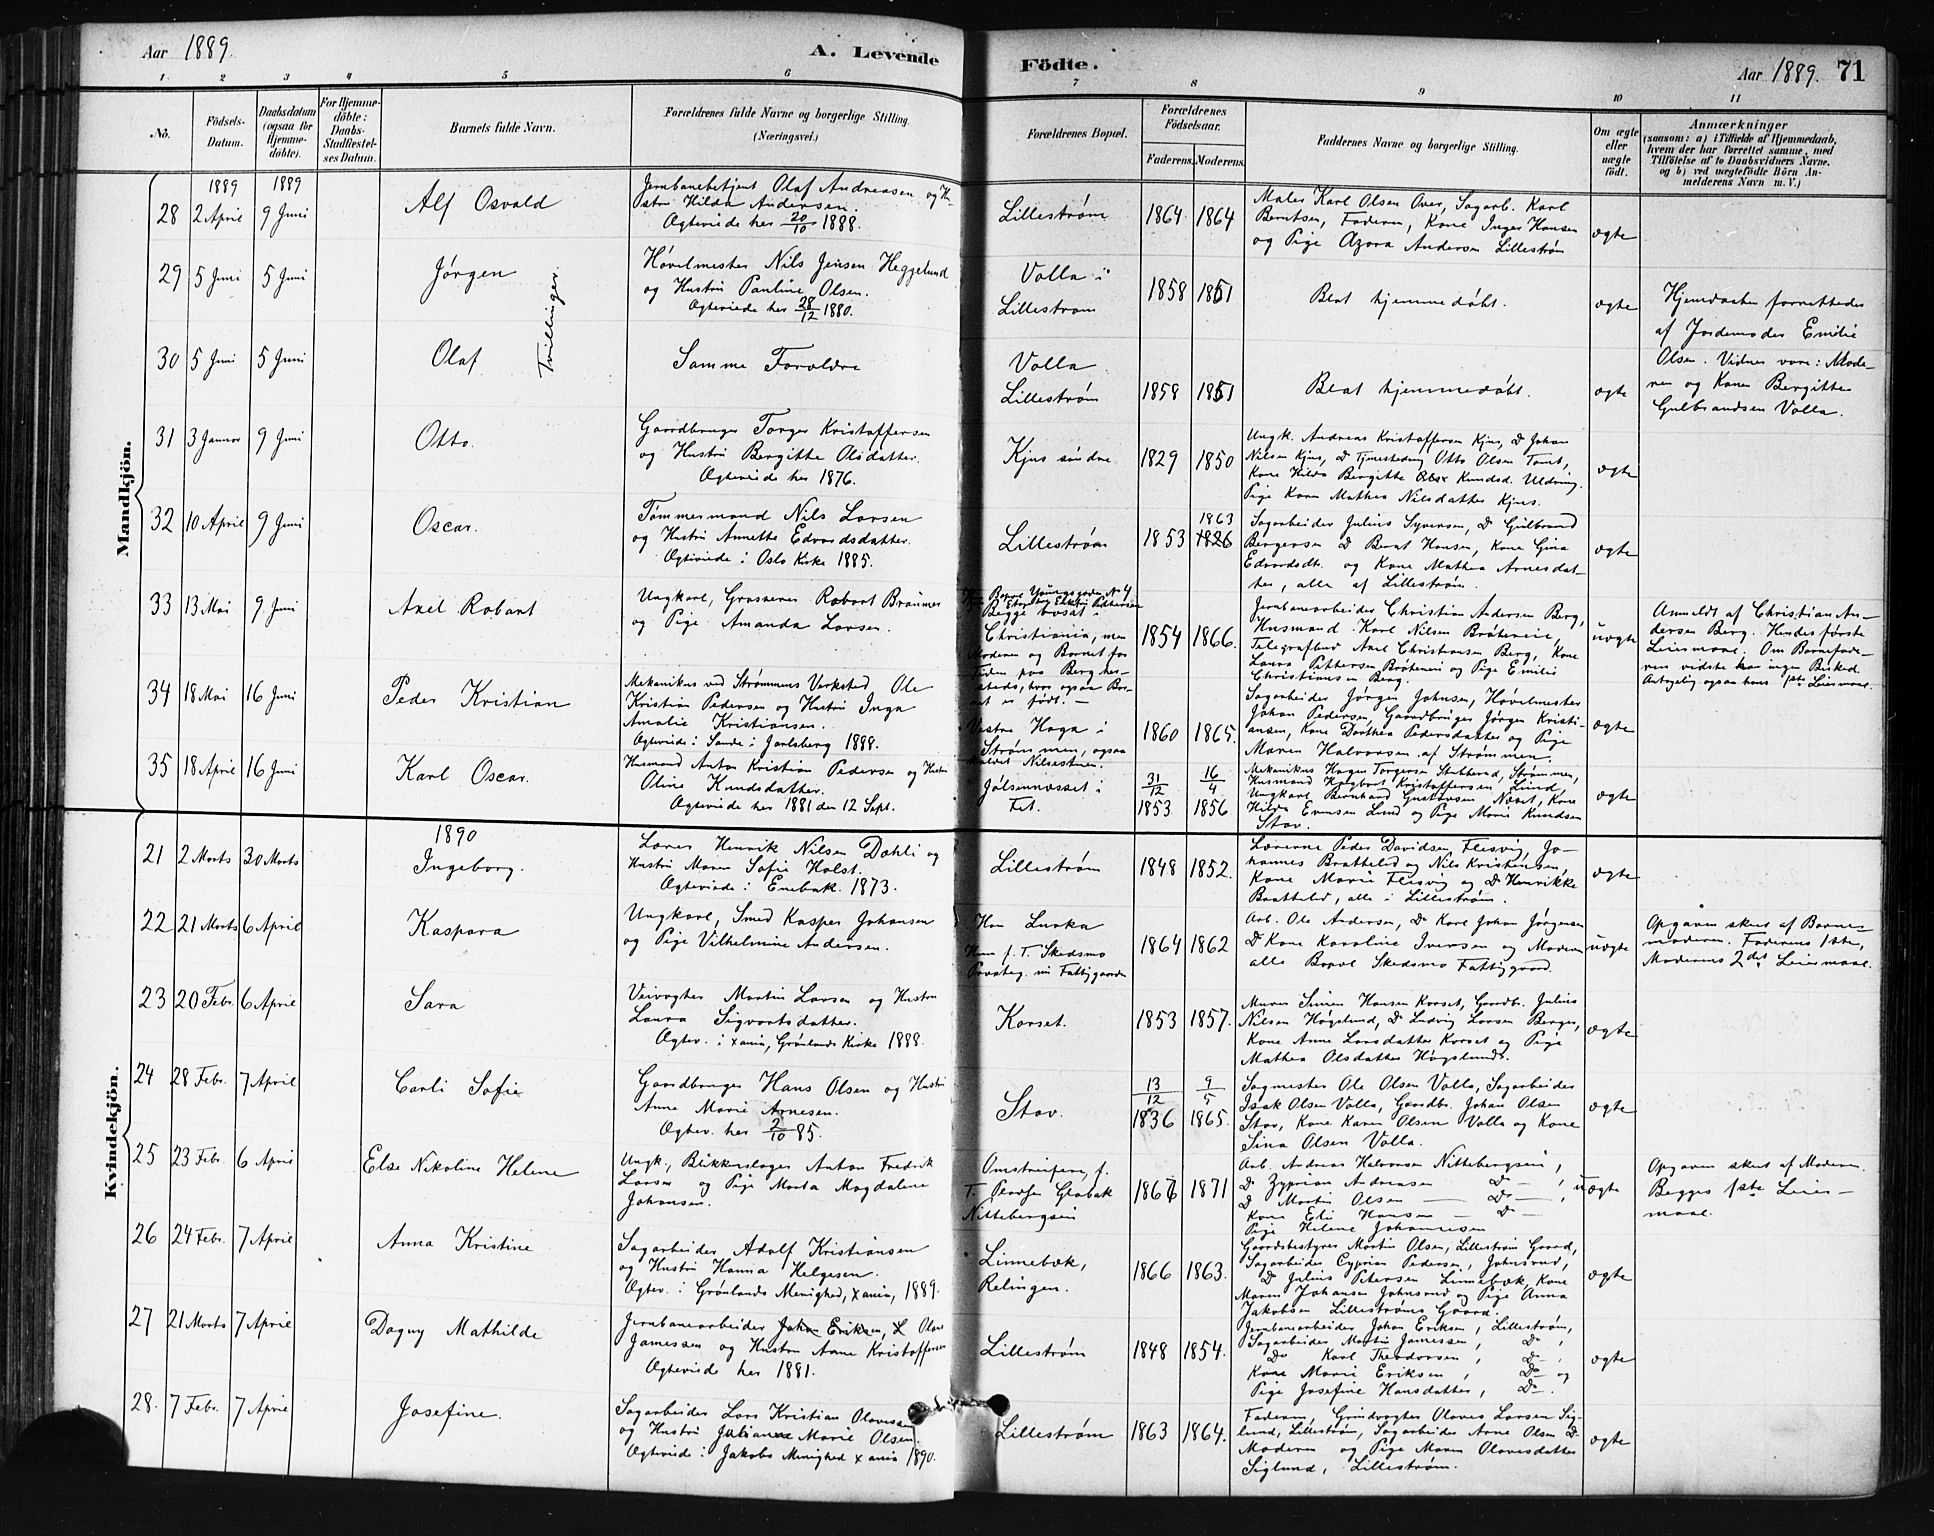 Aar 1889.
A. Levende
Födte.
Aar 1889. 71
1 2 3 4 5 6 7 8 9 10 11
No. Födsels-Datum. Daabsdatum (ogsaa for Hjemmedöbte). For Hjemmedöbte: Daabs-Stadfæstelses Datum. Barnets fulde Navn. Forældrenes fulde Navne og borgerlige Stilling (Næringsvei.) Forældrenes Bopæl. Forældrenes Födselsaar. Faderens. Moderens. Faddernes Navne og borgerlige Stilling. Om ægte eller uægte födt. Anmærkninger (saasom: a) i Tilfælde af Hjemmedaab, hvem der har forrettet samme, med Tilföielse af to Daabsvidners Navne, og b) ved uægtefödte Börn Anmelderens Navn m. V.)
Mandkjön.
1889 1889
28 2 April 9 Juni Alf Osvald
Jernbanebetjent Olaf Andreasen og Hustru Hilda Andersen.
Ægteviede her 20/10 1888.
Lillestrøm 1864 1864
Maler Karl Olsen Over, Sagarb. Karl
Berntsen, Faderen, Kone Inger Hansen
og Pige Azora Andersen Lillestrøm
ægte
29 5 Juni 5 Juni Jørgen
Tvillinger.
Høvelmester Nils Jensen Heggelund
og Hustru Pauline Olsen.
Ægteviede her 28/12 1880.
Volla i
Lillestrøm
1858 1851
Blot hjemmedøbt.
ægte
Hjemdaaben forrettedes
af Jordemoder Emilie
Olsen. Vidner vare: Mode-
ren og Kone Bergitte
Gulbrandsen Volla.
30 5 Juni 5 Juni Olaf
Samme Forældre
Volla
Lillestrøm
1858 1851
Blot hjemmedøbt.
ægte
31 3 Januar 9 Juni Otto.
Gaardbruger Torger Kristoffersen
og Hustru Bergitte Olsdatter.
Ægteviede her 1876.
Kjus søndre 1829 1850
Ungk. Andreas Kristoffersen Kjus, Do Johan
Nilsen Kjus, Do Tjenestedreng Otto Olsen Tomt,
Kone Hilda Bergitte Knudsd. Uldreng.
Pige Karen Mathea Nilsdatter Kjus.
ægte
32 10 April 9 Juni Oscar.
Tømmermand Nils Larsen
og Hustru Annette Edvardsdatter.
Ægteviede i Oslo Kirke 1885.
Lillestrøm 1853 1863
1826
Sagarbeider Julius Syversen, Do Gulbrand
Bergersen Do Bernt Hansen, Kone Gina
Edvardsdt. og Kone Mathea Arnesdat-
ter, alle af Lillestrøm.
ægte
33 13 Mai 9 Juni Axel Robert
Ungkarl, Grosserer Robert Braumer
og Pige Amanda Larsen.
Begge bosat i
Christiania, men
Moderen og Barnet for
Tiden paa Berg her-
steds, hvor ogsaa Bar-
net er født. —
1854 1866.
Jernbanearbeider Christian Andersen Berg,
Husmand Karl Nilsen Bråteneie,
Telegrafbud Axel Christiansen Berg, Kone
Laura Pettersen Bråteneie og Pige Emilie
Christiansen Berg.
uægte
Anmeldt af Christian An-
dersen Berg. Hendes første
Leiermaal. Om Barnefade-
ren vidste han ingen Besked.
Antagelig ogsaa hans 1ste Leiermaal.
34 18 Mai 16 Juni Peder Kristian
Mekanikus ved Strømmens Værksted Ole
Kristian Pedersen og Hustru Inga
Amalie Kristiansen.
Ægteviede i Sande i Jarlsberg 1888.
Vestre Haga i
Strømmen, ogsaa
kaldet Nilsestuen.
1860 1865.
Sagarbeider Jørgen Johnsen, Høvelmester
Johan Pedersen, Gaardbruger Jørgen Kristi-
ansen, Kone Dorthea Pedersdatter og Pige
Maren Halvorsen af Strømmen.
ægte
35 18 April 16 Juni Karl Oscar.
Husmand Anton Kristian Pedersen og Hustru
Oline Knudsdatter.
Ægteviede her 1881 den 12 Sept.
Jølsennæsset i
Fet.
31/12 1853 16/4 1856
Mekanikus Hagen Torgersen Stubberud, Strømmen,
Husmand Hagbart Kristoffersen Lund,
Ungkarl Bernhard Gustavsen Næset, Kone
Hilda Evensen Lund og Pige Marie Knudsen
Stav.
ægte
Kvindekjön.
1890
21 2 Marts 30 Marts Ingeborg.
Lærer Henrik Nilsen Dahli og
Hustru Maren Sofie Holst.
Ægteviede i Enebak 1873.
Lillestrøm 1848 1852.
Lærerne Peder Davidsen Flesvig, Jo-
hannes Bratteled og Nils Kristensen,
Kone Marie Flesvig og Do Henrikke
Bratteled, alle i Lillestrøm.
ægte
22 21 Marts 6 April Kaspara
Ungkarl, Smed Kasper Johansen
og Pige Vilhelmine Andersen.
Han Lurka
Hun f. T. Skedsmo
Præsteg. in Fattiggaarden
1864 1862
Arb. Ole Andersen, Do Karl Johan Jørgensen
Do Kone Karoline Iversen og Moderen
alle Bopæl Skedsmo Fattiggaard.
uægte
Opgaven skeet af Barne-
moderen. Faderens 1ste,
Moderens 2det Leiermaal.
23 20 Febr. 6 April Sara
Veivogter Martin Larsen og Hustru
Laura Sigvartsdatter.
Ægtev. i Xania, Grønlands Kirke 1888.
Korset. 1853 1857.
Murer Simen Hansen Korset, Gaardbr. Julius
Nilsen Høgslund, Do Ludvig Larsen Berger,
Kone Anne Larsdatter Korset og Pige
Mathea Olsdatter Høgslund.
ægte
24 28 Febr. 7 April Carli Sofie
Gaardbruger Hans Olsen og Hustru
Anne Marie Arnesen.
Ægtev. her 2/10 85.
Stav. 13/12 1836 9/5 1865.
Sagmester Ole Olsen Volla, Sagarbeider
Isak Olsen Volla, Gaardbr. Johan Olsen
Stav, Kone Karen Olsen Volla og Kone
Sina Olsen Volla.
ægte
25 23 Febr. 6 April Else Nikoline Helene
Ungk., Blikkenslager Anton Fredrik
Larsen og Pige Marta Magdalene
Johansen.
Omstreifere, f.
T. Nittebergseie
1866 1871
Arb. Andreas Halvorsen Nittebergseie,
Do Zyprian Andreasen Do —,
Do Martin Olsen — Do —
Kone Eli Hansen — Do —
Pige Helene Johannesen
uægte
Opgaven skeet af Moderen.
Begges 1ste Leier-
maal.
26 24 Febr. 7 April Anna Kristine
Sagarbeider Adolf Kristiansen
og Hustru Hanna Helgesen.
Ægtev. i Grønlands Menighed, Xania, 1889.
Linnebæk,
Relingen.
1866 1863.
Gaardsbestyrer Martin Olsen, Lillestrøm Gaard,
Sagarbeider Cyprian Pedersen, Johnsrud,
Do Julius Petersen Linnebæk, Kone
Maren Johansen Johnsrud og Pige Anna
Jakobsen Lillestrøms Gaard.
ægte
27 21 Marts 7 April Dagny Mathilde
Jernbanearbeider Johan Eriksen, L Olaus
Jamessen og Hustru Anne Kristoffersen
Ægteviede her 1881.
Lillestrøm 1848 1854.
Jernbanearbeider Johan Eriksen, Lillestrøm,
Sagarbeider Martin Jamessen, Do,
Do Karl Theodorsen, Do,
Kone Marie Eriksen, Do og
Pige Josefine Hansdatter, Do.
ægte
28. 7 Febr. 7 April Josefine.
Sagarbeider Lars Kristian Olavesen
og Hustru Juliane Marie Olsen.
Ægteviede i Jakobs Menighed Xania 1890.
Lillestrøm 1863 1864.
Faderen, Grindvogter Olaves Larsen Sig-
lund, Lillestrøm, Sagarbeider Arne Olsen Do
Moderen og Pige Maren Olavesdatter
Siglund, Lillestrøm.
ægte